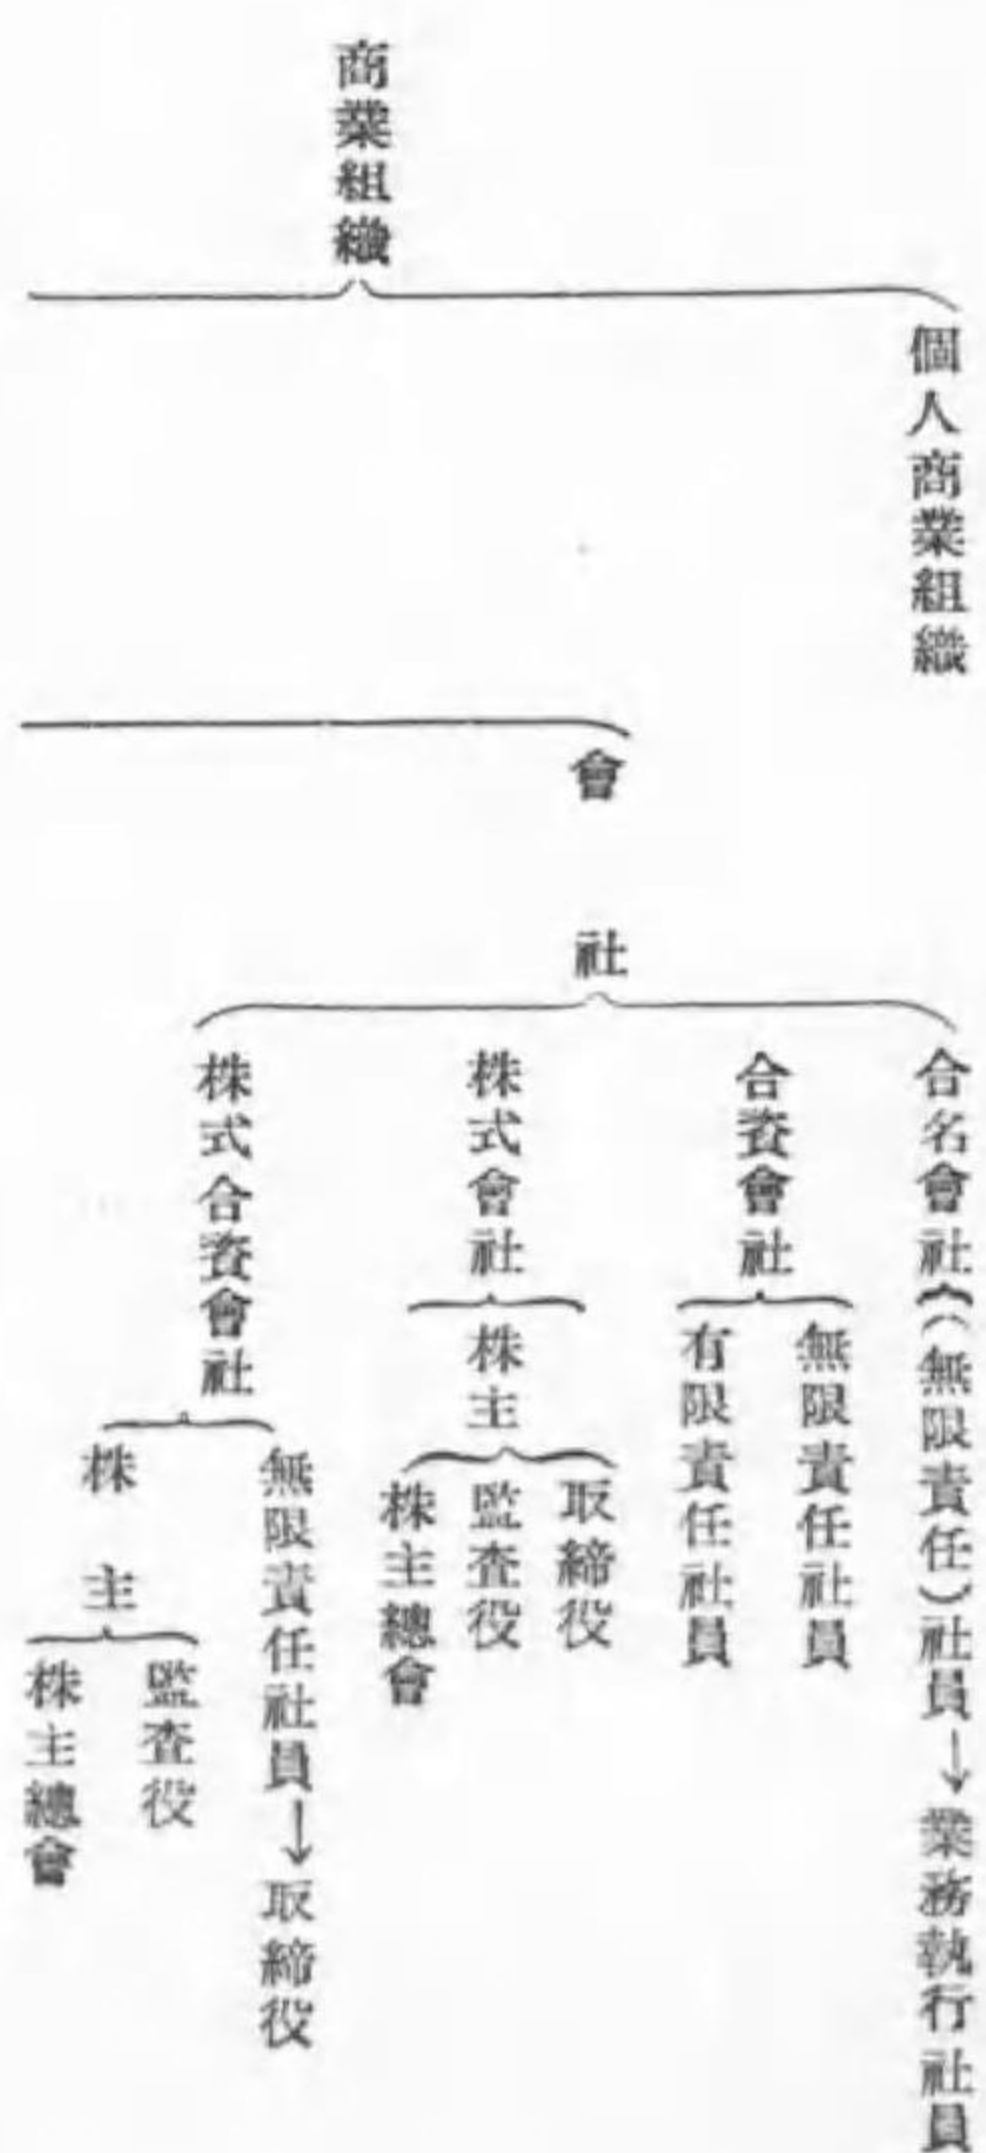 商業組織
個人商業組織
會社
合名會社(無限責任)社員→業務執行社員
合資會社
無限責任社員
有限責任社員
株式會社
株主
取締役
監査役
株主總會
株式合資會社
無限責任社員→取締役
株主
監査役
株主總會